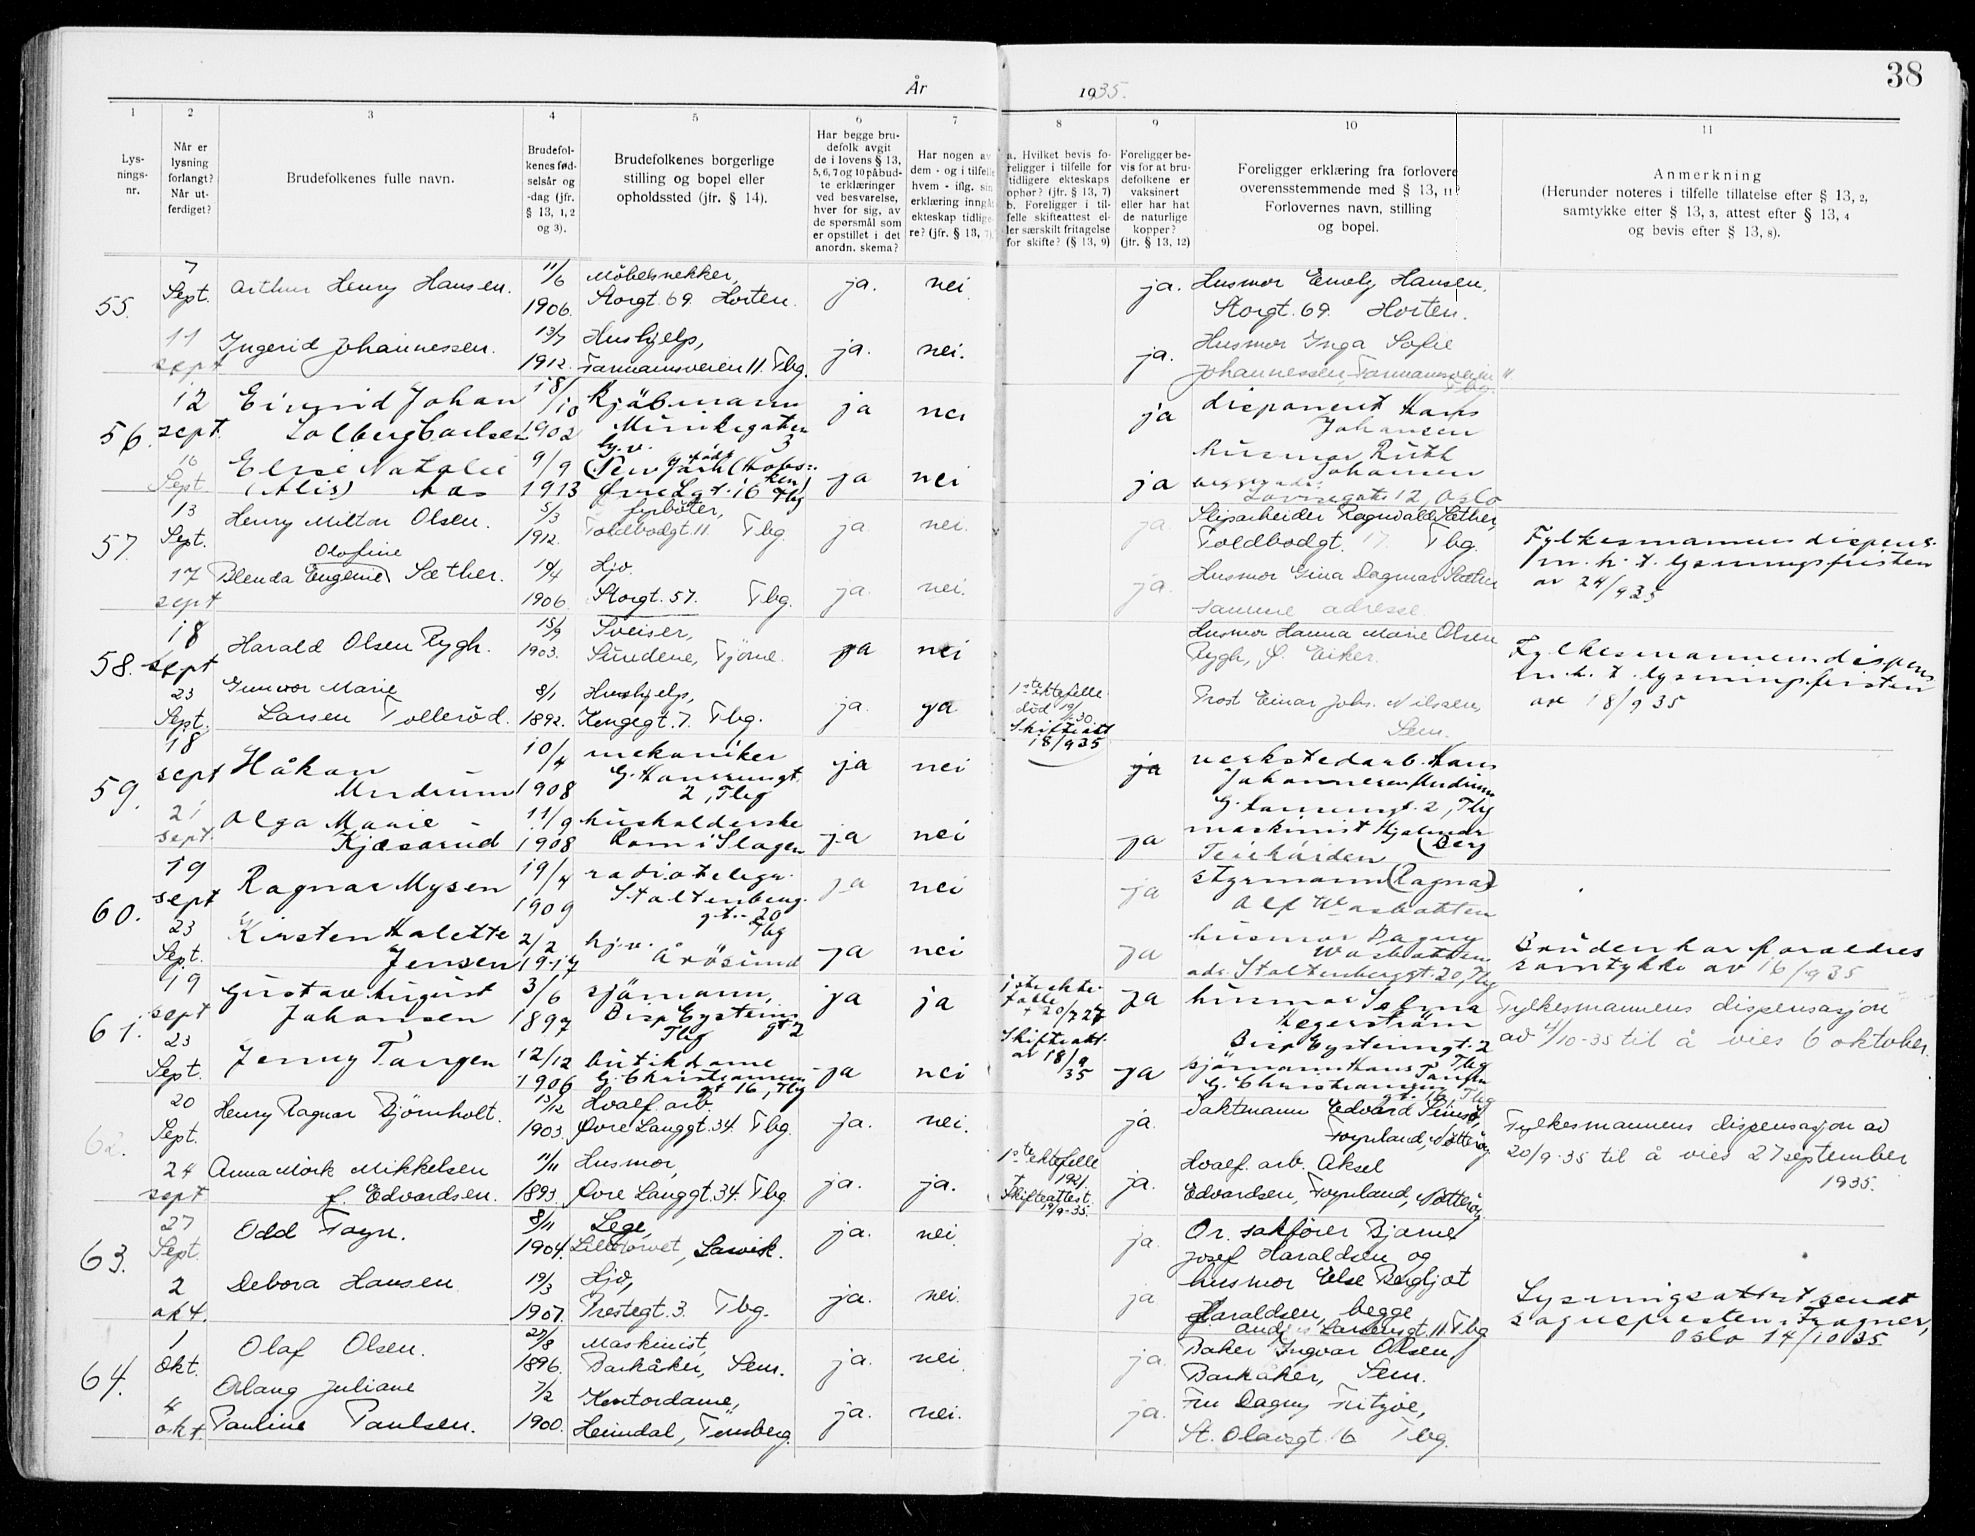 38
År 1935.
1 2 3 4 5 6 7 8 9 10 11
Lys-
nings-
nr.
Når er
lysning
forlangt?
Når ut-
ferdiget?
Brudefolkenes fulle navn.
Brudefol-
kenes fød-
selsår og
-dag (jfr.
§ 13, 1, 2
og 3).
Brudefolkenes borgerlige
stilling og bopel eller
opholdssted (jfr. § 14).
Har begge bru-
defolk avgit
de i lovens § 13,
5, 6, 7 og 10 påbud-
te erklæringer
ved besvarelse,
hver for sig, av
de spørsmål som
er opstillet i det
anordn. skema?
Har nogen av
dem - og i tilfelle
hvem - iflg. sin
erklæring inngåt
ekteskap tidlige-
re? (jfr. § 13, 7).
a. Hvilket bevis fo-
religger i tilfelle for
tidligere ekteskaps
ophør? (jfr. § 13, 7)
b. Foreligger i til-
felle skifteattest el-
ler særskilt fritagelse
for skifte? (§ 13, 9)
Foreligger be-
vis for at bru-
defolkene er
vaksinert
eller har hat
de naturlige
kopper?
(jfr. § 13, 12)
Foreligger erklæring fra forlovere
overensstemmende med § 13, 11?
Forlovernes navn, stilling
og bopel.
Anmerkning
(Herunder noteres i tilfelle tillatelse efter § 13, 2,
samtykke efter § 13, 3, attest efter § 13, 4
og bevis efter § 13, 8).
55. 7 Sept. Arthur Henry Hansen. 11/6 1906. Møbelsnekker, Storgt. 69 Horten. ja. nei. ja. Husmor Emely Hansen, Storgt. 69. Horten.
11 sept Ingerid Johannessen. 13/7 1912. Hushjelp, Farmannsveien 11. Tbg. ja. nei. ja. Husmor Inga Sofie Johannessen, Farmannsveien 11 Tbg.
56. 12 sept. Eivind Johan Solberg Carlsen 18/10 1902 Kjøbmann Minikegaten 3 ja nei ja disponent Hans Johansen
16 Sept. Else Natalie (Alis) Aas 9/9 1913 hj.v. Øvre Lgt. 16 Tbg ja nei ja husmor Ruth Johansen begge adr. 12, Oslo
57. 13 Sept. Henry Milton Olsen. 5/3 1912. fyrbøter, Toldbodgt. 11. Tbg. ja nei. ja. Slipsarbeider Ragnvald Sæther, Toldbodgt. 17. Tbg. Fylkesmannens dispens. m. h. t. lysningsfristen av 24/9 35
17 sept Blenda Olofine Eugenie Sæther. 14/4 1906. Hjv. Storgt. 57. Tbg. ja. nei. ja. Husmor Gina Dagmar Sæther samme adresse.
58. 18 sept Harald Olsen Rygh. 15/9 1903. Sveiser, Sundene, Tjöme. ja nei Husmor Hanna Marie Olsen Rygh, Ø. Eiker. Fylkesmannens dispens. m. h. t. lysningsfristen av 18/9 35
23 Sept. Gunvor Marie Larsen Tolleröd. 8/1 1892. Hushjelp, Kongegt. 7. Tbg. ja. ja 1ste ektefelle död 19/ -30. Skifteatt 18/9 35 Prost Einar Johs. Nilssen, Sem.
59. 18 sept Håkon Mudrum 10/4 1908 mekaniker G. Hansensgt. 2, Tbg ja nei ja verkstedarb. Hans Johannesen Mudrum G. Hansensgt. 2, Tbg
21 sept. Olga Marie Kjæserud 11/9 1908 husholderske Rom i Slagen ja nei ja maskinist Hjalmar Berg Teiehöiden
60. 19 sept Ragnar Mysen 19/4 1909 radiotelegr. Stoltenberg. gt. 20 Tbg ja nei ja styrmann (Ragnar) Alf Wasbotten
23 Sept. Kirsten Halette Jensen 2/2 1917 hj.v. Årösund ja nei ja husmor Dagny Wasbotten adr. Stoltenberggt. 20, Tbg Bruden har foreldres samtykke av 16/9 35
61. 19 sept Gustav August Johansen 3/6 1897 sjömann, Bisp Eysteins gt 2 Tbg ja ja 1ste ekte- felle + 20/7 27 Skifteatt. av 18/9 35 ja husmor Selma Hegerström Bisp Eysteinsgt. 2 Tbg Fylkesmannens dispensasjon av 4/10-35 til å vies 6 oktober.
23 Sept. Jenny Tangen 12/12 1906 butikdame G. Christiansens gt 16, Tbg ja nei ja sjömann Hans Tangen G. Christiansens gt. 16, Tbg
62. 20 Sept. Henry Ragnar Bjørnholt. 13/12 1903. Hvalf. arb. Øvre Langgt. 34. Tbg. ja. nei. ja. Taktmann Edvard Føynland, Nøtterøy Fylkesmannens dispensasjon av 20/9-35 til å vies 27 september 1935.
24 sept Anna Mörk Mikkelsen f. Edvardsen. 11/11 1893. Husmor, Øvre Langgt. 34. Tbg ja. ja. 1ste ektefelle + 1921. Skifteattest. 19/9-35. ja. Hvalf. arb. Aksel Edvardsen, Føynland, Nøtterøy
63. 27 Sept. Odd Foyn. 8/11 1904. Lege, Lilletorvet, Larvik. ja. nei. ja. Or. sakfører Bjarne Josef Haraldsen og
2 okt. Debora Hansen 19/3 1907. Hjv, Prestegt. 3. Tbg. ja. nei. ja husmor Else Bergljot Haraldsen, begge Larsensgt. 11 Tbg Lysningsattest sendt sognepresten i Frogner, Oslo 14/10 35
64. 1 Okt. Olaf Olsen. 27/8 1896. Maskinist, Barkåker, Sem. ja. nei. ja. Baker Ingvar Olsen, Barkåker, Sem.
4 okt. Aslaug Juliane Pauline Paulsen. 7/2 1900. Kontordame, Heimdal, Tönsberg. ja. nei. ja. Fru Dagny Fritzöe, St. Olavsgt. 6 Tbg.